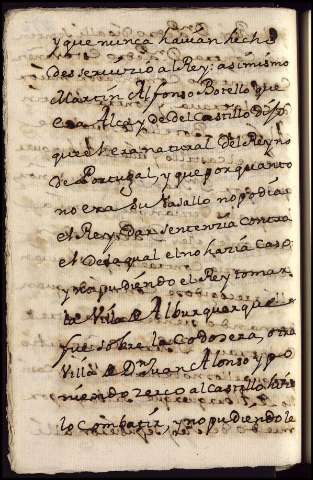 y que nunca havian hecho
desservizio al Rey: asimismo
Martin Alfonso Botello que
era Alcayde del Castillo dijo
que el era natural del Reyno
de Portugal, y que por quanto
no era su Vasallo no podia
el Rey dar sentenzia contra
el De la qual el no haria caso
y no pudiendo el Rey tomar
la Villa de Alburquerque
fue sobre la Codosera, otra
Villa de Dn Juan Alonso y po
niendo zerco al Castillo hizo
lo combatir, y no pudiendo le